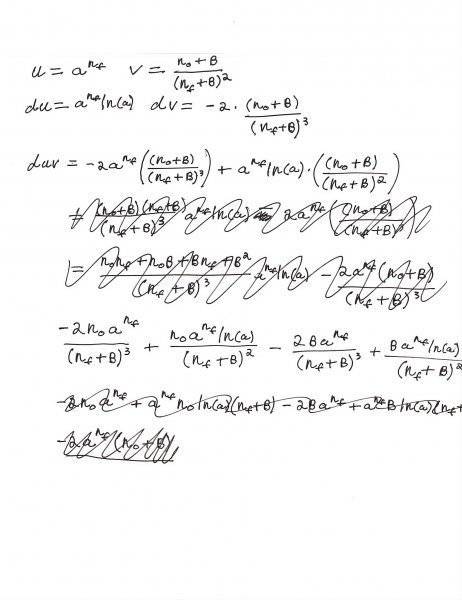 u = a^{n_f}   v = \frac{n_0 + B}{(n_f + B)^2}
du = a^{n_f} ln(a)   dv = -2 · \frac{(n_0 + B)}{(n_f + B)^3}
duv = -2a^{n_f} ( \frac{(n_0 + B)}{(n_f + B)^3} ) + a^{n_f} ln(a) · ( \frac{(n_0 + B)}{(n_f + B)^2} )
= \frac{(n_0 + B)(n_f + B)}{(n_f + B)^3} a^{n_f} ln(a) - 2a^{n_f} ( \frac{(n_0 + B)}{(n_f + B)^3} )
= \frac{n_0 n_f + n_0 B + B n_f + B^2}{(n_f + B)^3} a^{n_f} ln(a) - \frac{2a^{n_f} (n_0 + B)}{(n_f + B)^3}
\frac{-2 n_0 a^{n_f}}{(n_f + B)^3} + \frac{n_0 a^{n_f} ln(a)}{(n_f + B)^2} - \frac{2 B a^{n_f}}{(n_f + B)^3} + \frac{B a^{n_f} ln(a)}{(n_f + B)^2}
-2 n_0 a^{n_f} + a^{n_f} n_0 ln(a) (n_f + B) - 2 B a^{n_f} + a^{n_f} B ln(a) (n_f +
-2 a^{n_f} (n_0 + B)